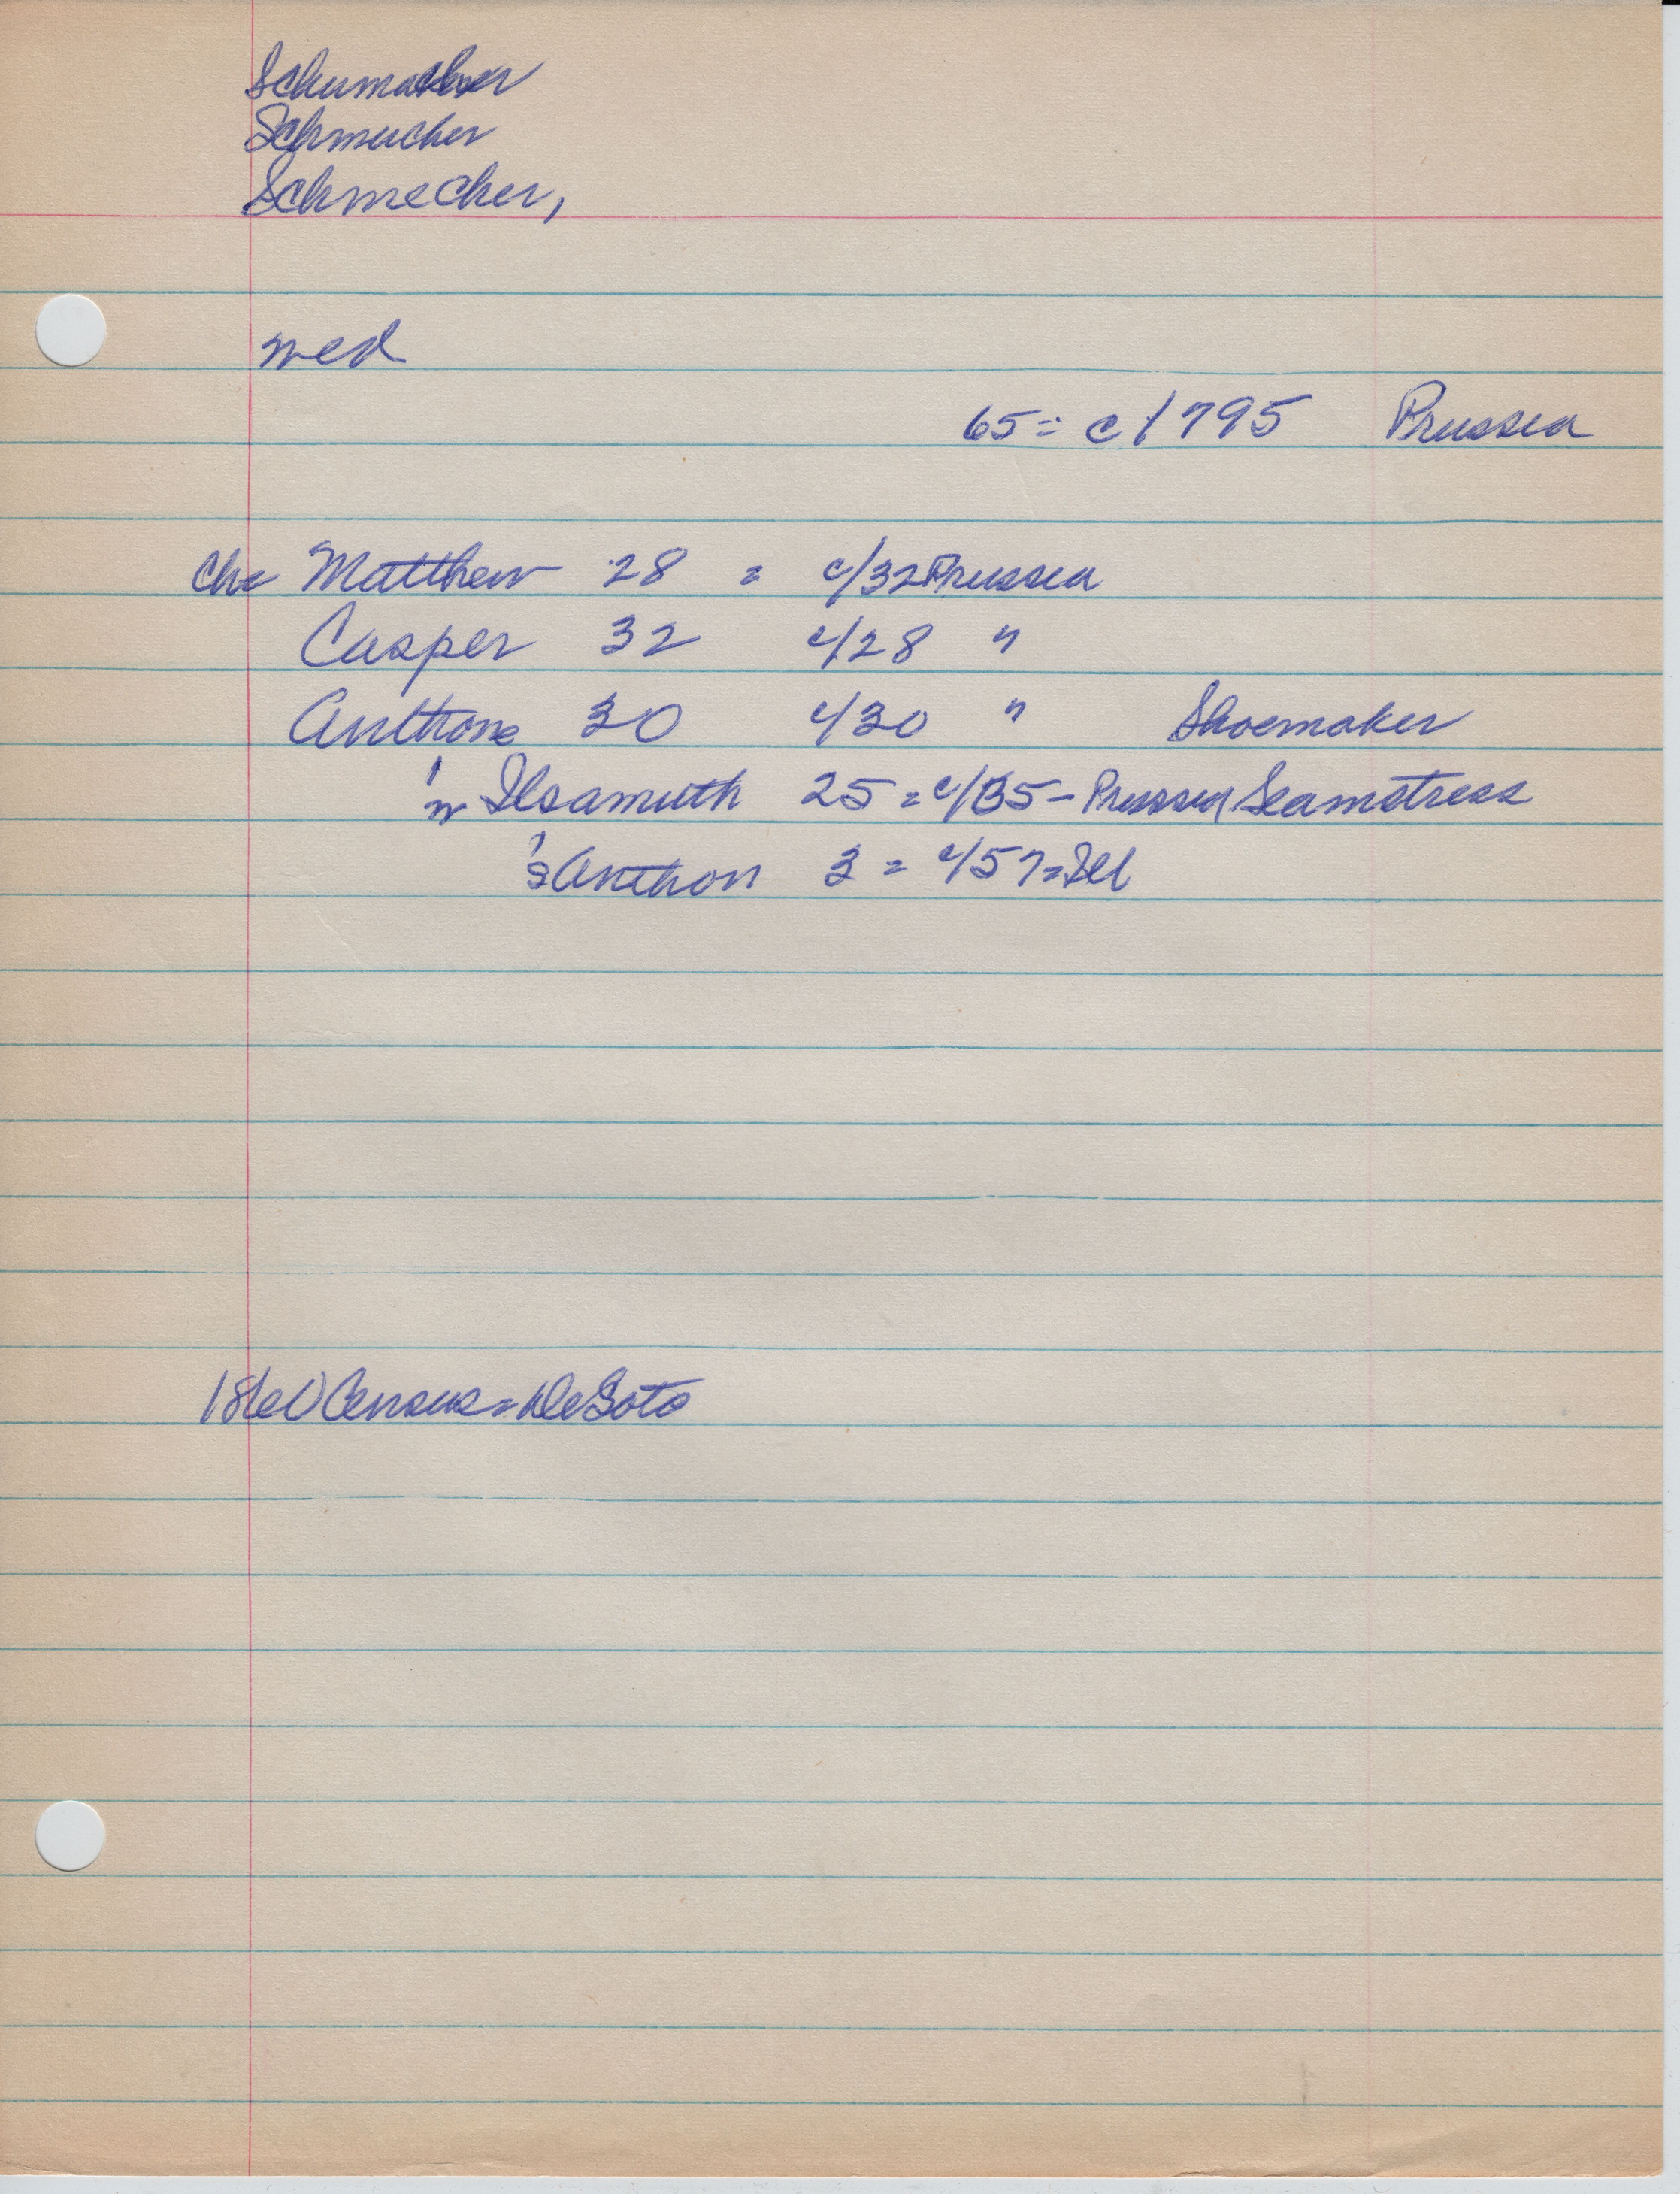 Schumacher
Schmucher
Schmecher,
wed
65 = c 1795 Prussia
Chr Matthew 28 = c/32 Prussia
Casper 32 c/28 "
Anthone 30 c/30 " Shoemaker
w 25 = c/35 - Prussia Seamstress
s Anthon 3 = c/57 = Ill
1860 Census = DeSoto